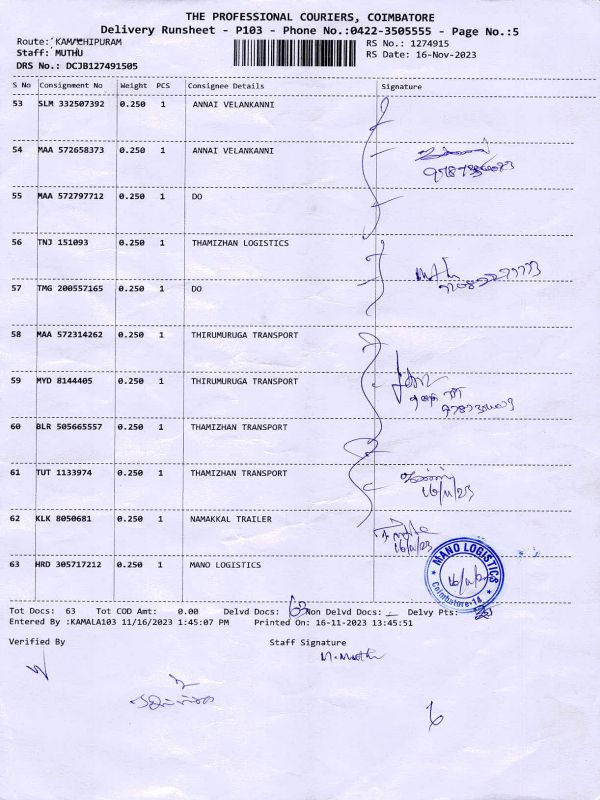 THE PROFESSIONAL COURIERS, COIMBATORE
Delivery Runsheet - P103 - Phone No.:0422-3505555 - Page No.:5
Route: KAMATCHIPURAM
RS No.: 1274915
Staff: MUTHU
RS Date: 16-Nov-2023
DRS No.: DCJB127491505
S No Consignment No Weight PCS Consignee Details Signature
53 SLM 332507392 0.250 1 ANNAI VELANKANNI
54 MAA 572658373 0.250 1 ANNAI VELANKANNI
55 MAA 572797712 0.250 1 DO
56 TNJ 151093 0.250 1 THAMIZHAN LOGISTICS
57 TMG 200557165 0.250 1 DO
58 MAA 572314262 0.250 1 THIRUMURUGA TRANSPORT
59 MYD 8144405 0.250 1 THIRUMURUGA TRANSPORT
60 BLR 505665557 0.250 1 THAMIZHAN TRANSPORT
61 TUT 1133974 0.250 1 THAMIZHAN TRANSPORT
16/11/23
62 KLK 8050681 0.250 1 NAMAKKAL TRAILER
16/11/23
63 HRD 305717212 0.250 1 MANO LOGISTICS
MANO LOGISTICS
Coimbatore-14
Tot Docs: 63 Tot COD Amt: 0.00 Delvd Docs: 63 Non Delvd Docs: Delvy Pts:
Entered By :KAMALA103 11/16/2023 1:45:07 PM Printed On: 16-11-2023 13:45:51
Verified By Staff Signature
M. Muthu